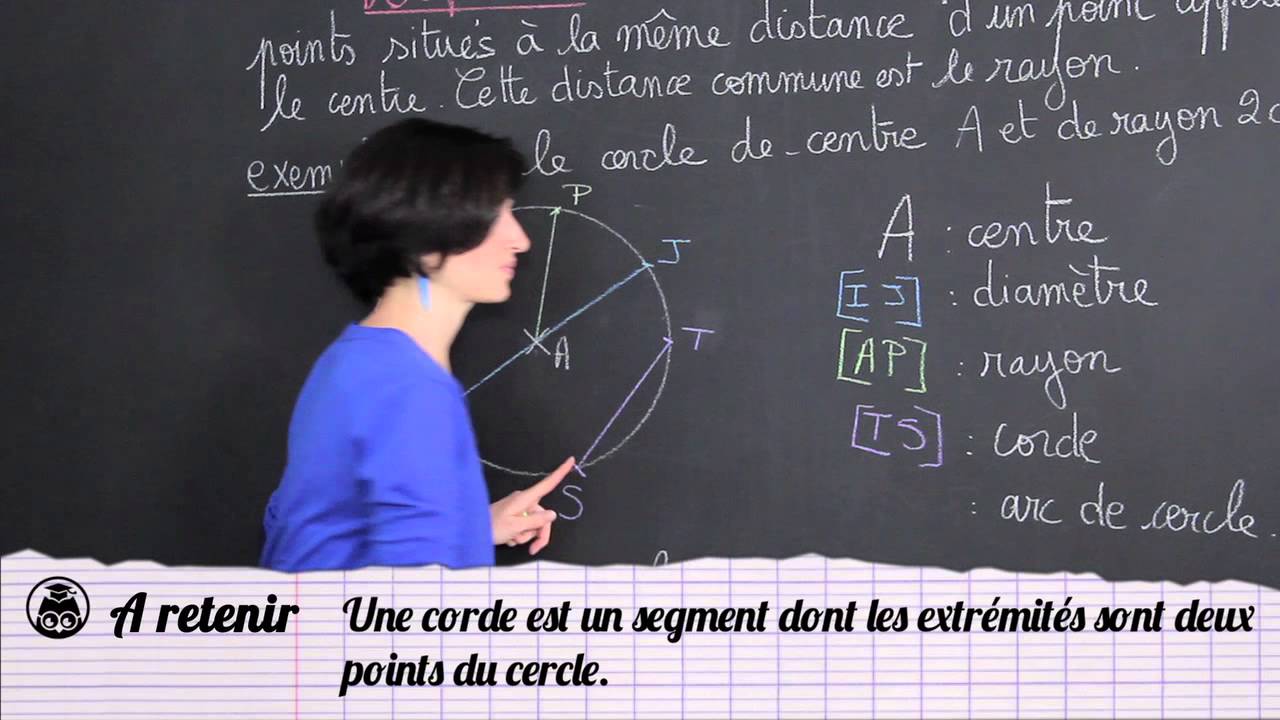 points situés à la même distance d'un point
le centre. Cette distance commune est le rayon.
le cercle de centre A et de rayon 2
P
J
T
A
S
A : centre
[IJ] : diamètre
[AP] : rayon
[TS] : corde
: arc de cercle.
A retenir
Une corde est un segment dont les extrémités sont deux
points du cercle.